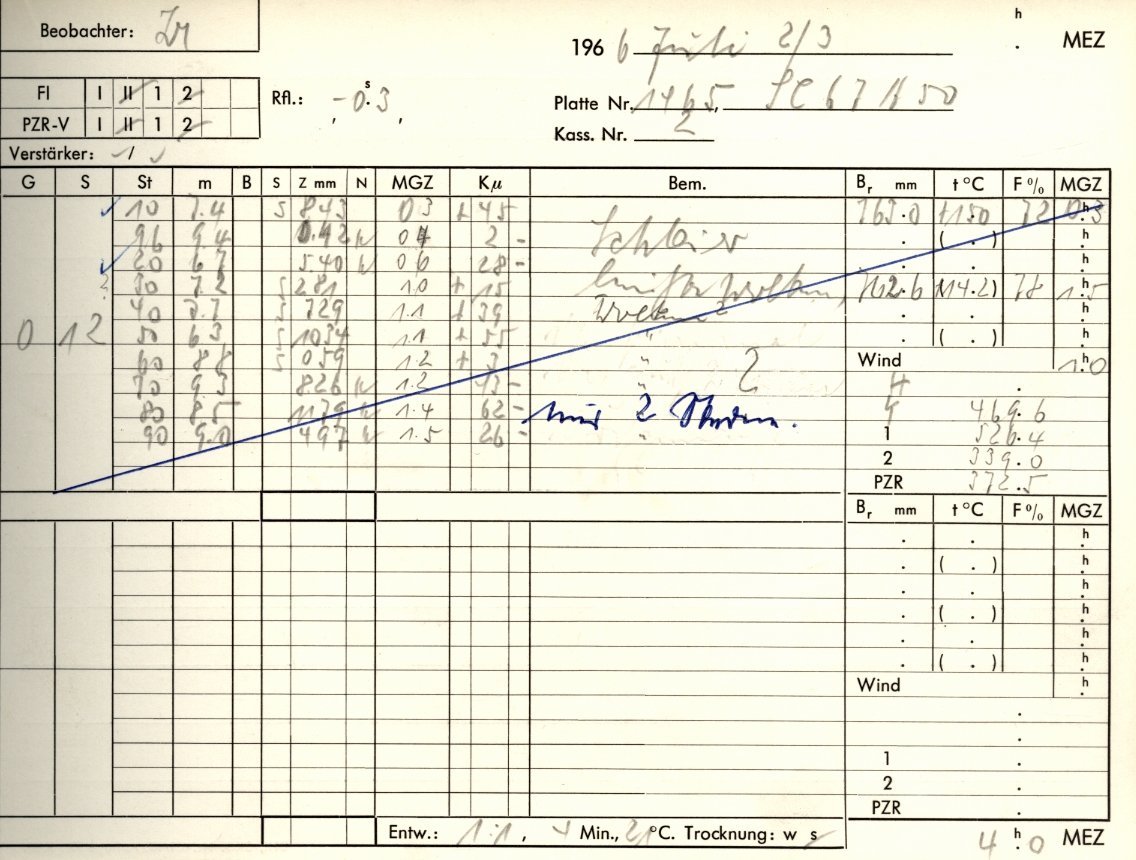 Beobachter:
1966 Juli 2/3 h . MEZ
FI I II 1 2
PZR-V I II 1 2
Rfl.: -0.3 s
Platte Nr. 1465,
Kass. Nr. 2
Verstärker: /
G S St m B S Z mm N MGZ Kµ Bem. Br mm t °C F % MGZ
10 7.4 S 843 03 + 45 763.0 72 0.3
96 9.4 0.42 N 04 2 - Schleier . ( . ) h
20 6.7 540 N 06 28 - . . h
? 30 7.2 S 281 1.0 + 15 762.6 (14.2) 78 1.5
40 7.7 S 729 1.1 + 39 Wolken 2 . . h
0 12 50 6.3 S 1034 1.1 + 55 " . ( . ) h
60 8.8 S 059 1.2 + 3 " Wind 1.0
70 9.3 826 N 1.2 43 - "
80 8.5 1179 N 1.4 62 - nur 2 469.6
90 9.0 497 N 1.5 26 - " 1 526.4
2 339.0
PZR 372.5
Br mm t °C F % MGZ
. . h
. ( . ) h
. . h
. ( . ) h
. . h
. ( . ) h
Wind h
.
.
1 .
2 .
PZR .
Entw.: 1:1, 4 Min., 21 °C. Trocknung: w s
4 h 0 MEZ